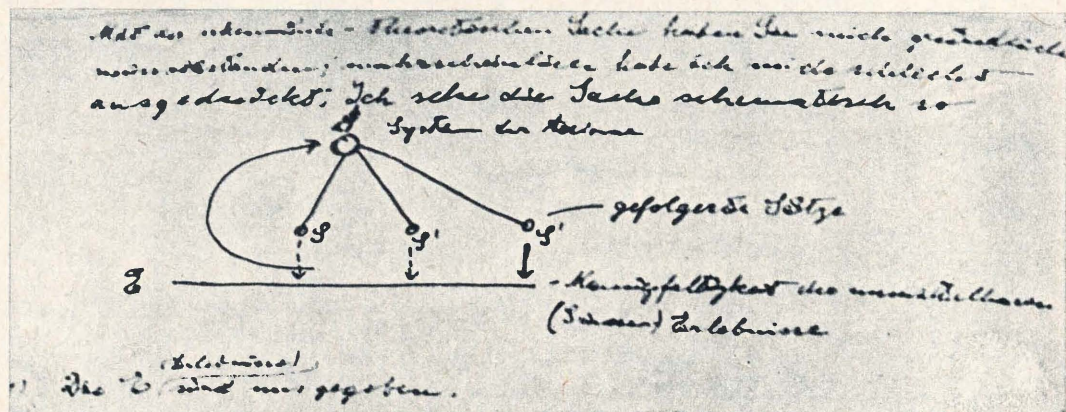 theoretischen Sache haben Sie mich gründlich
missverstanden; wahrscheinlich habe ich mich schlecht
ausgedrückt. Ich sehe die Sache schematisch so
System der Axiome
S S' S' gefolgerte Sätze
E Mannigfaltigkeit der unmittelbaren
(Sinnes) Erlebnisse
(Erlebnisse)
Die E sind uns gegeben.